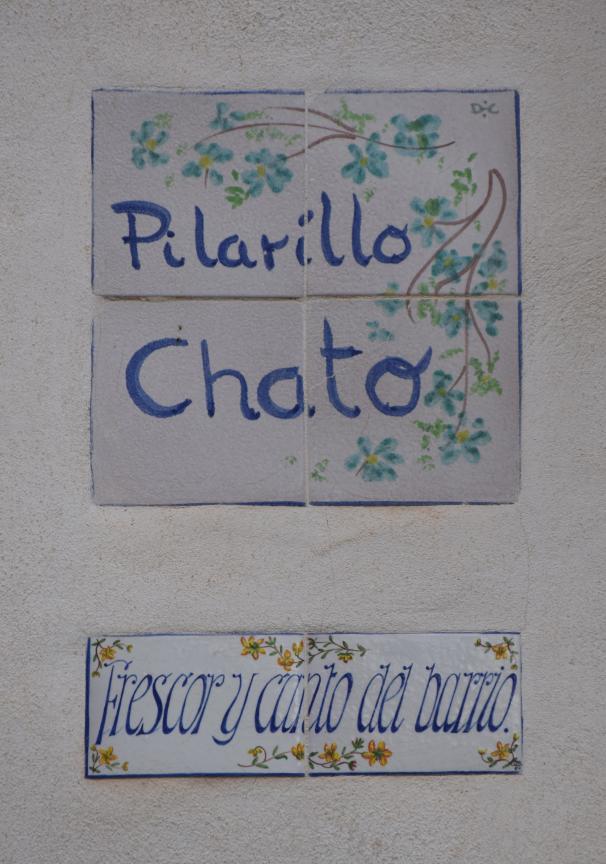 D.C
Pilarillo
Chato
Frescor y canto del barrio.